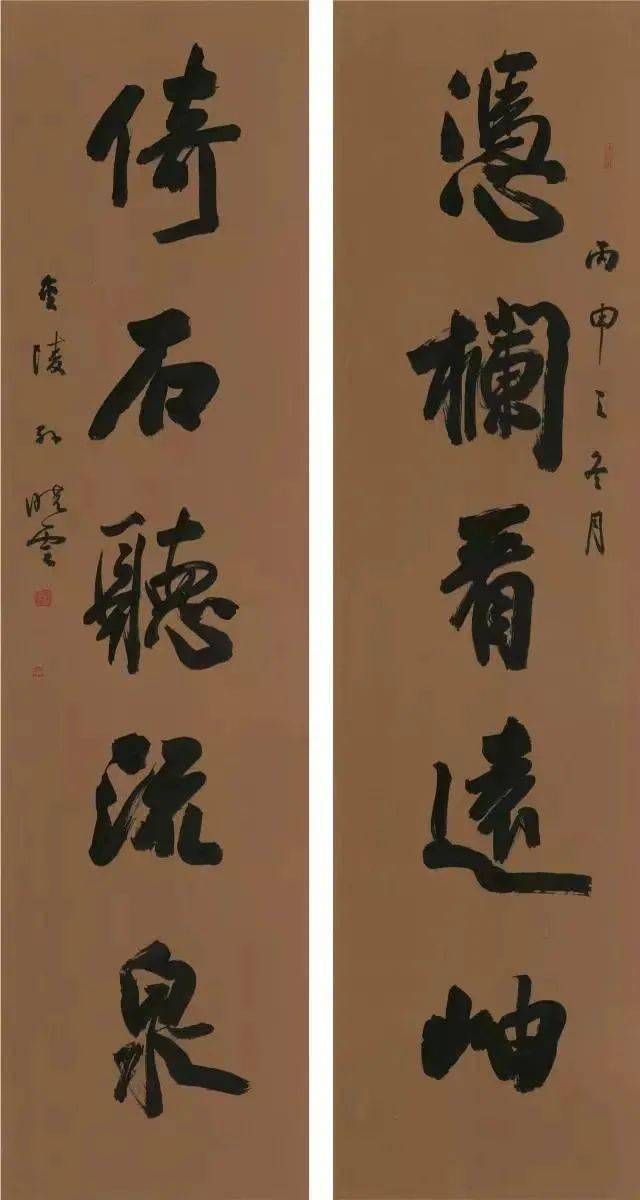 丙申之冬月
憑欄看遠岫
倚石聽流泉
金陵孙曉雲